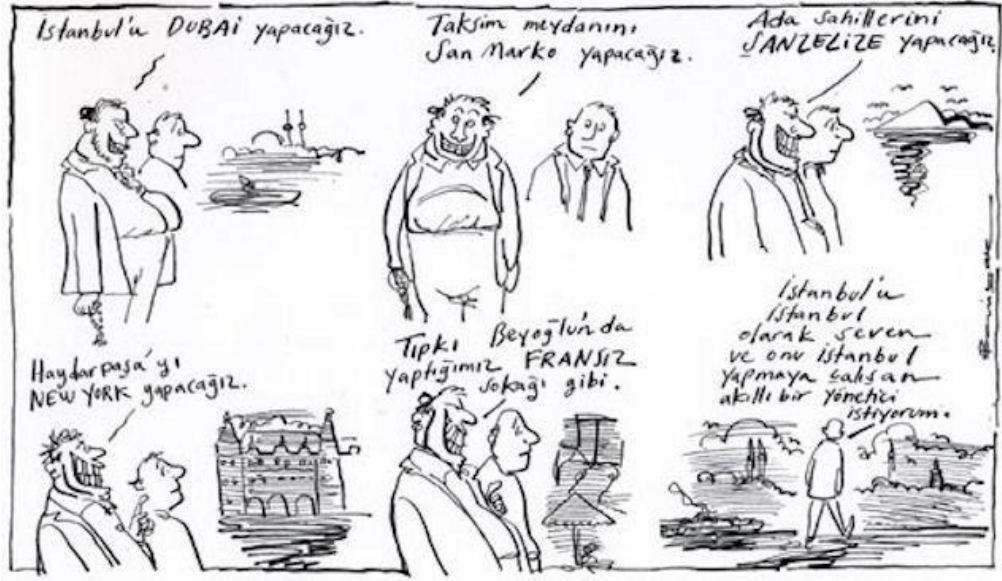 İstanbul'u DUBAİ yapacağız.
Taksim meydanını
San Marko yapacağız.
Ada sahillerini
ŞANZELİZE yapacağız.
Haydarpaşa'yı
NEW YORK yapacağız.
Tıpkı Beyoğlu'nda
yaptığımız FRANSIZ
sokağı gibi.
İstanbul'u
istanbul
olarak seven
ve onu istanbul
yapmaya çalışan
akıllı bir yönetici
istiyorum.